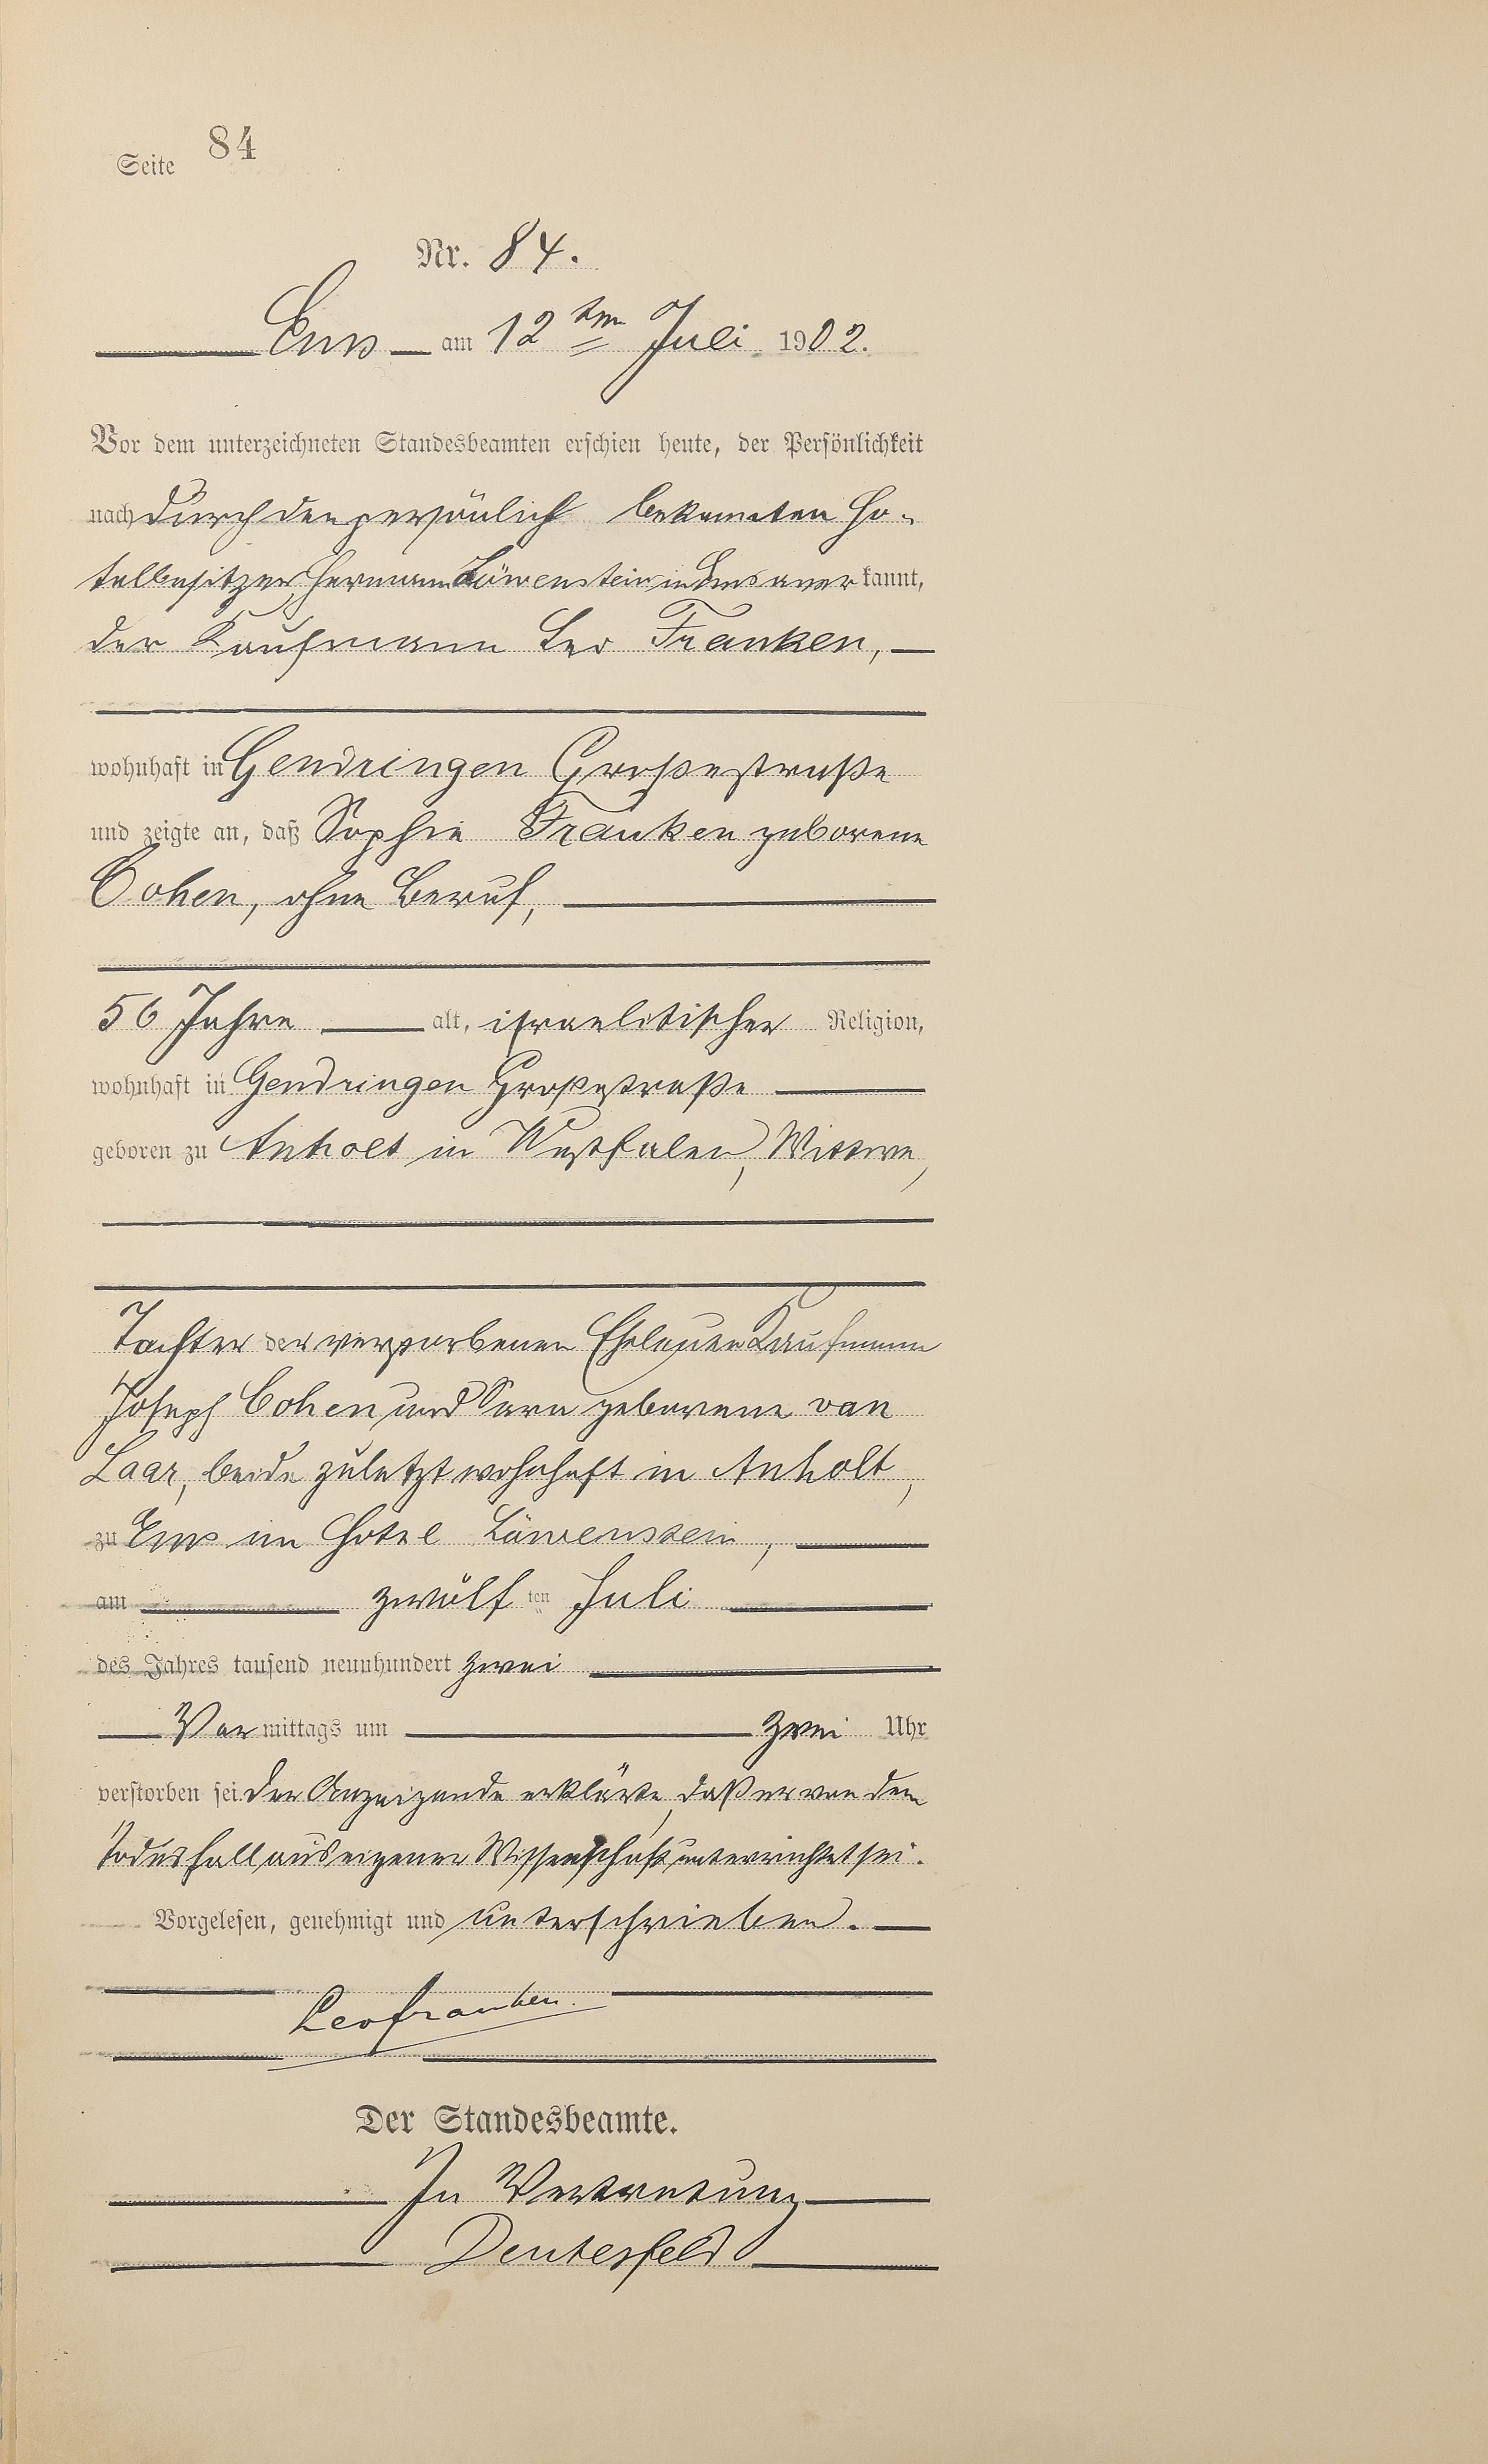 Seite 84
Nr. 84.
Ems am 12ten Juli 1902.
Vor dem unterzeichneten Standesbeamten erschien heute, der Persönlichkeit
nach durch den persönlich bekannten Ho-
telbesitzer Hermann Löwenstein in Ems anerkannt,
der Kaufmann Leo Franken,
wohnhaft in Gendringen Großestraße
und zeigte an, daß Sophie Franken geborene
Cohen, ohne Beruf,
56 Jahre alt, israelitischer Religion,
wohnhaft in Gendringen Großestraße
geboren zu Anholt in Westfalen, Wittwe,
Tochter der verstorbenen Eheleute Kaufmann
Joseph Cohen und Sara geborene van
Laar, beide zuletzt wohnhaft in Anholt,
zu Ems im Hotel Löwenstein,
am zwölften Juli
des Jahres tausend neunhundert zwei
Vormittags um zwei Uhr
verstorben sei. Der Anzeigende erklärte, daß er von dem
Todesfall aus eigener Wissenschaft unterrichtet sei.
Vorgelesen, genehmigt und unterschrieben.
Leo Franken.
Der Standesbeamte.
In Vertretung
Deutesfeld